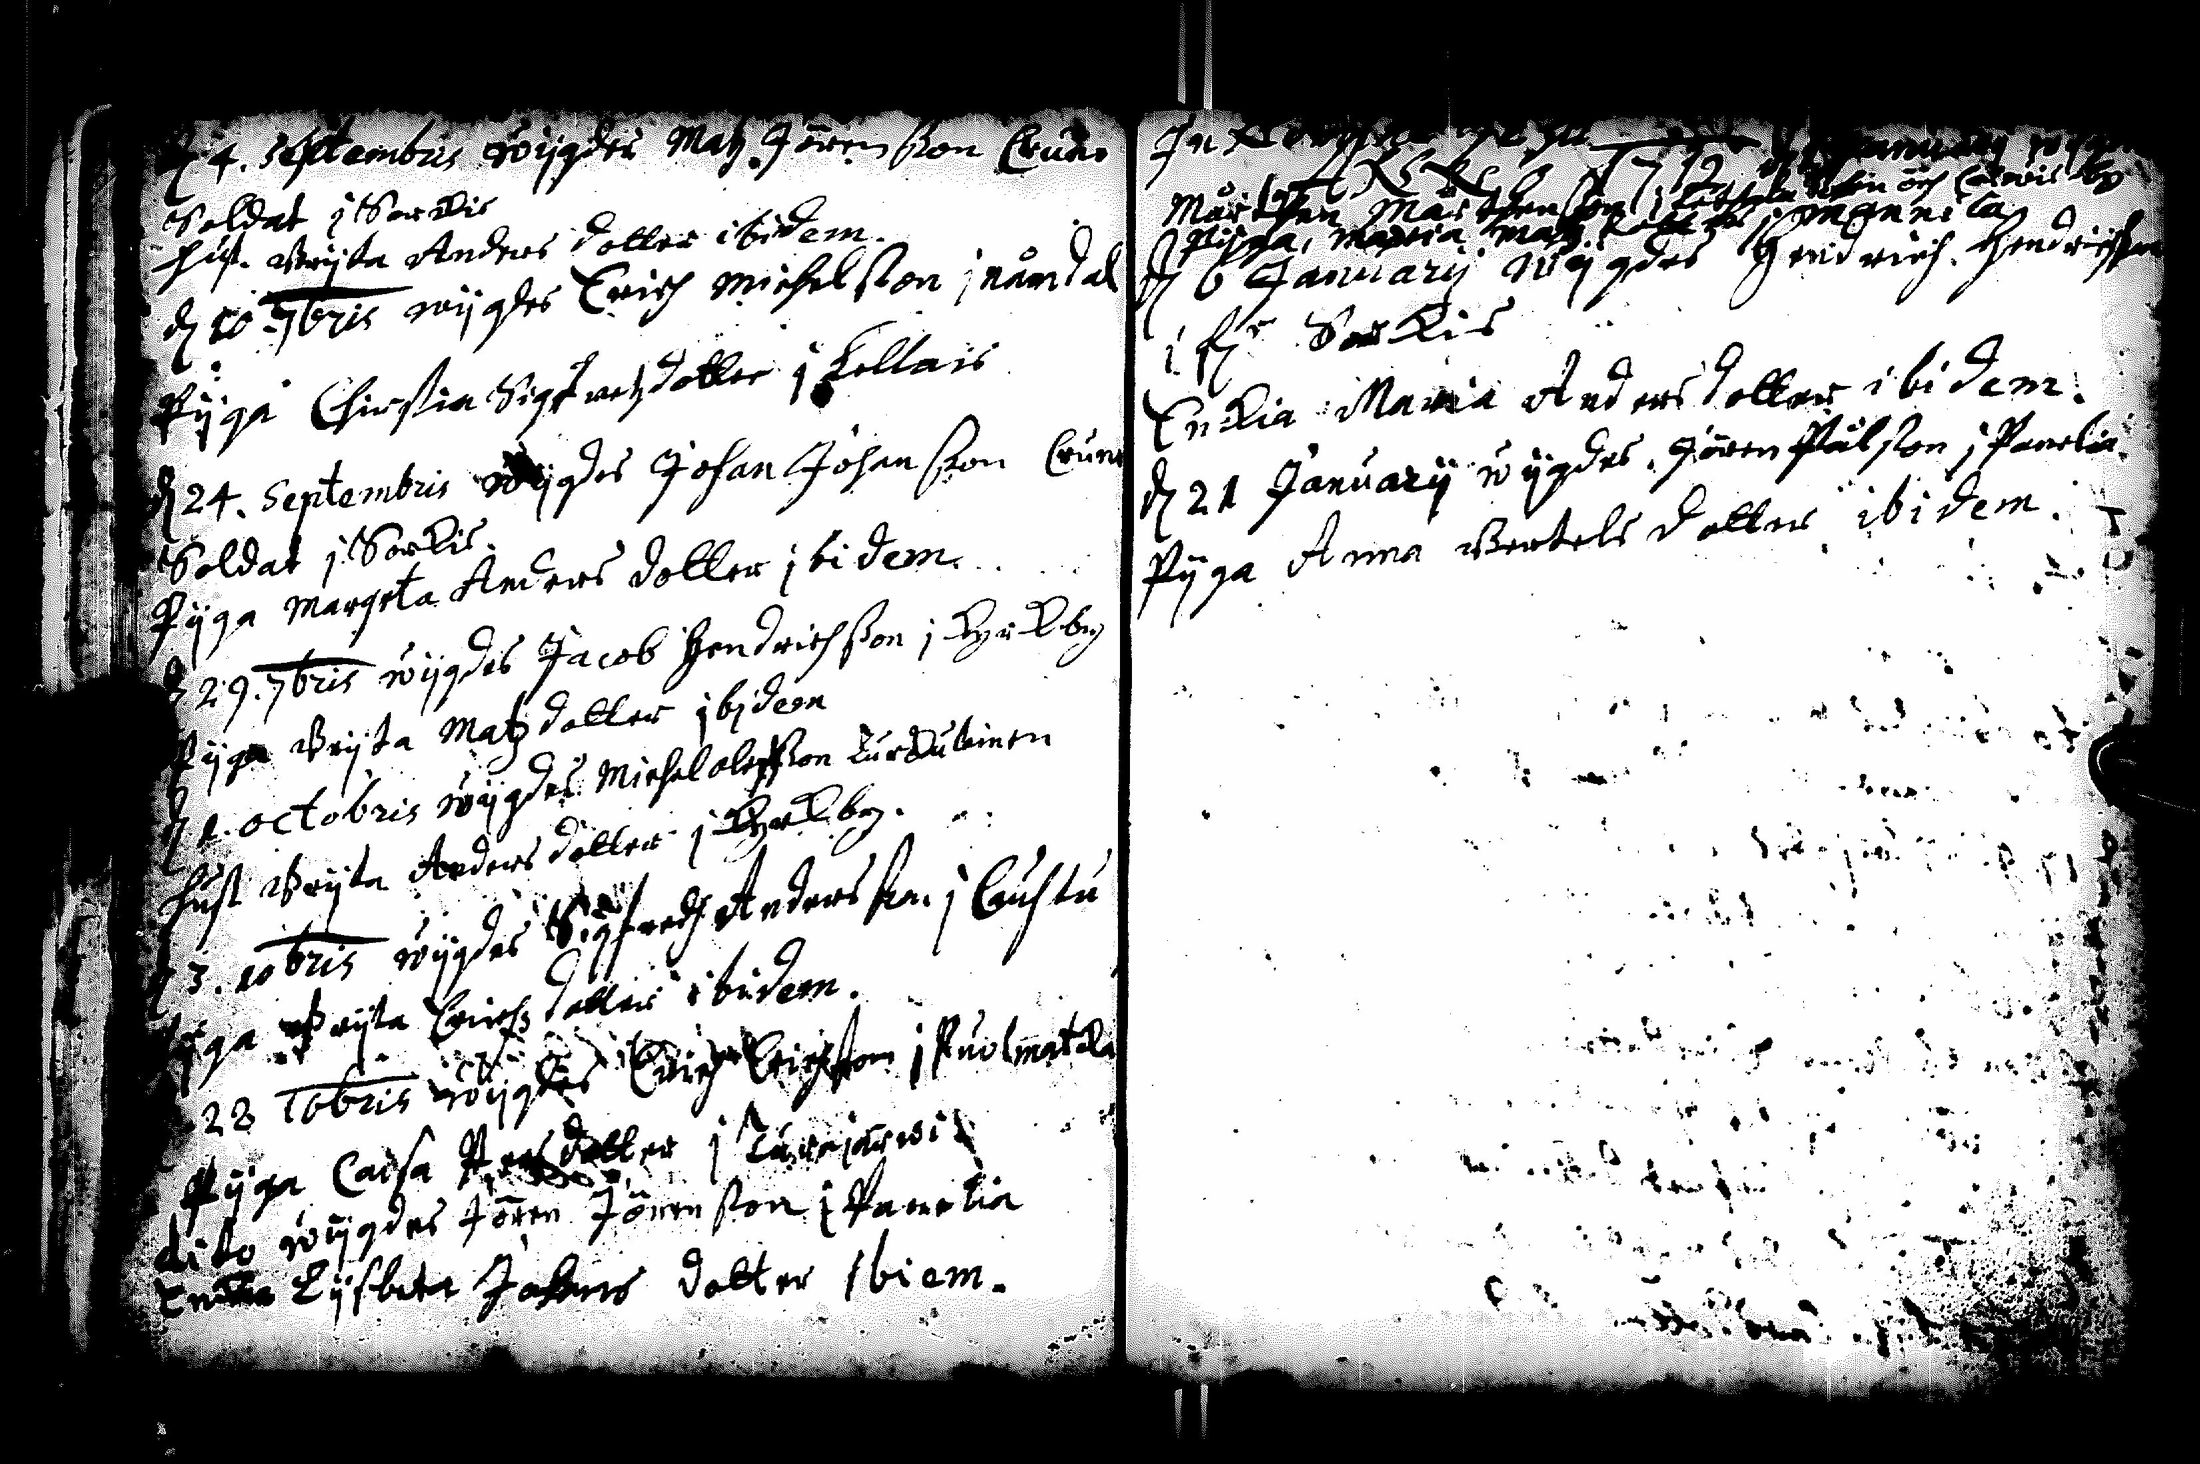 4. Septembris wijgdes Matz Jörensson Cruno
Soldat i Sorkis
Hust. Brijta Anders dotter ibidem.
d 10 7bris wijgdes Erich Michelsson i nåmdal
Pijga Chirstia Sigfretz dotter j Kellais
d 24. Septembris wijgdes Johan Johansson Cruno
Soldat j Sorkis.
Pijga Margeta Anders dotter jbidem.
29. 7bris wijgdes Jacob Hendrichsson j Kyrkby
Pijga Brijta Matz dotter jbidem
d 1. octobris wijgdes Michel olofsson Kurkulainen
Hust Brijta Anders dotter j Kyrkby.
3. 10bris wijgdes Sigfredh Andersson j Cauhtu
Pijga Brijta Erichs dotter ibidem.
28 10bris wijgdes Erich Erichsson j Puolmatka
Pijga Caisa dotter j Turajärwi
dito wijgdes Jören Jörensson i Panelia
Enkia Lijsbeta Johans dotter ibiem.
1712 January
Mårthen Mårthensson
Pijga, Maria Matz dotter i Mannila
d 6 Januarij wijgdes Hendrich Hendrichsson
i Sorkis
Enkia Maria Anders dotter ibidem.
d 21 Januarij wijgdes Jören Pålsson j Panelia.
Pijga Anna Bertels dotter ibidem.